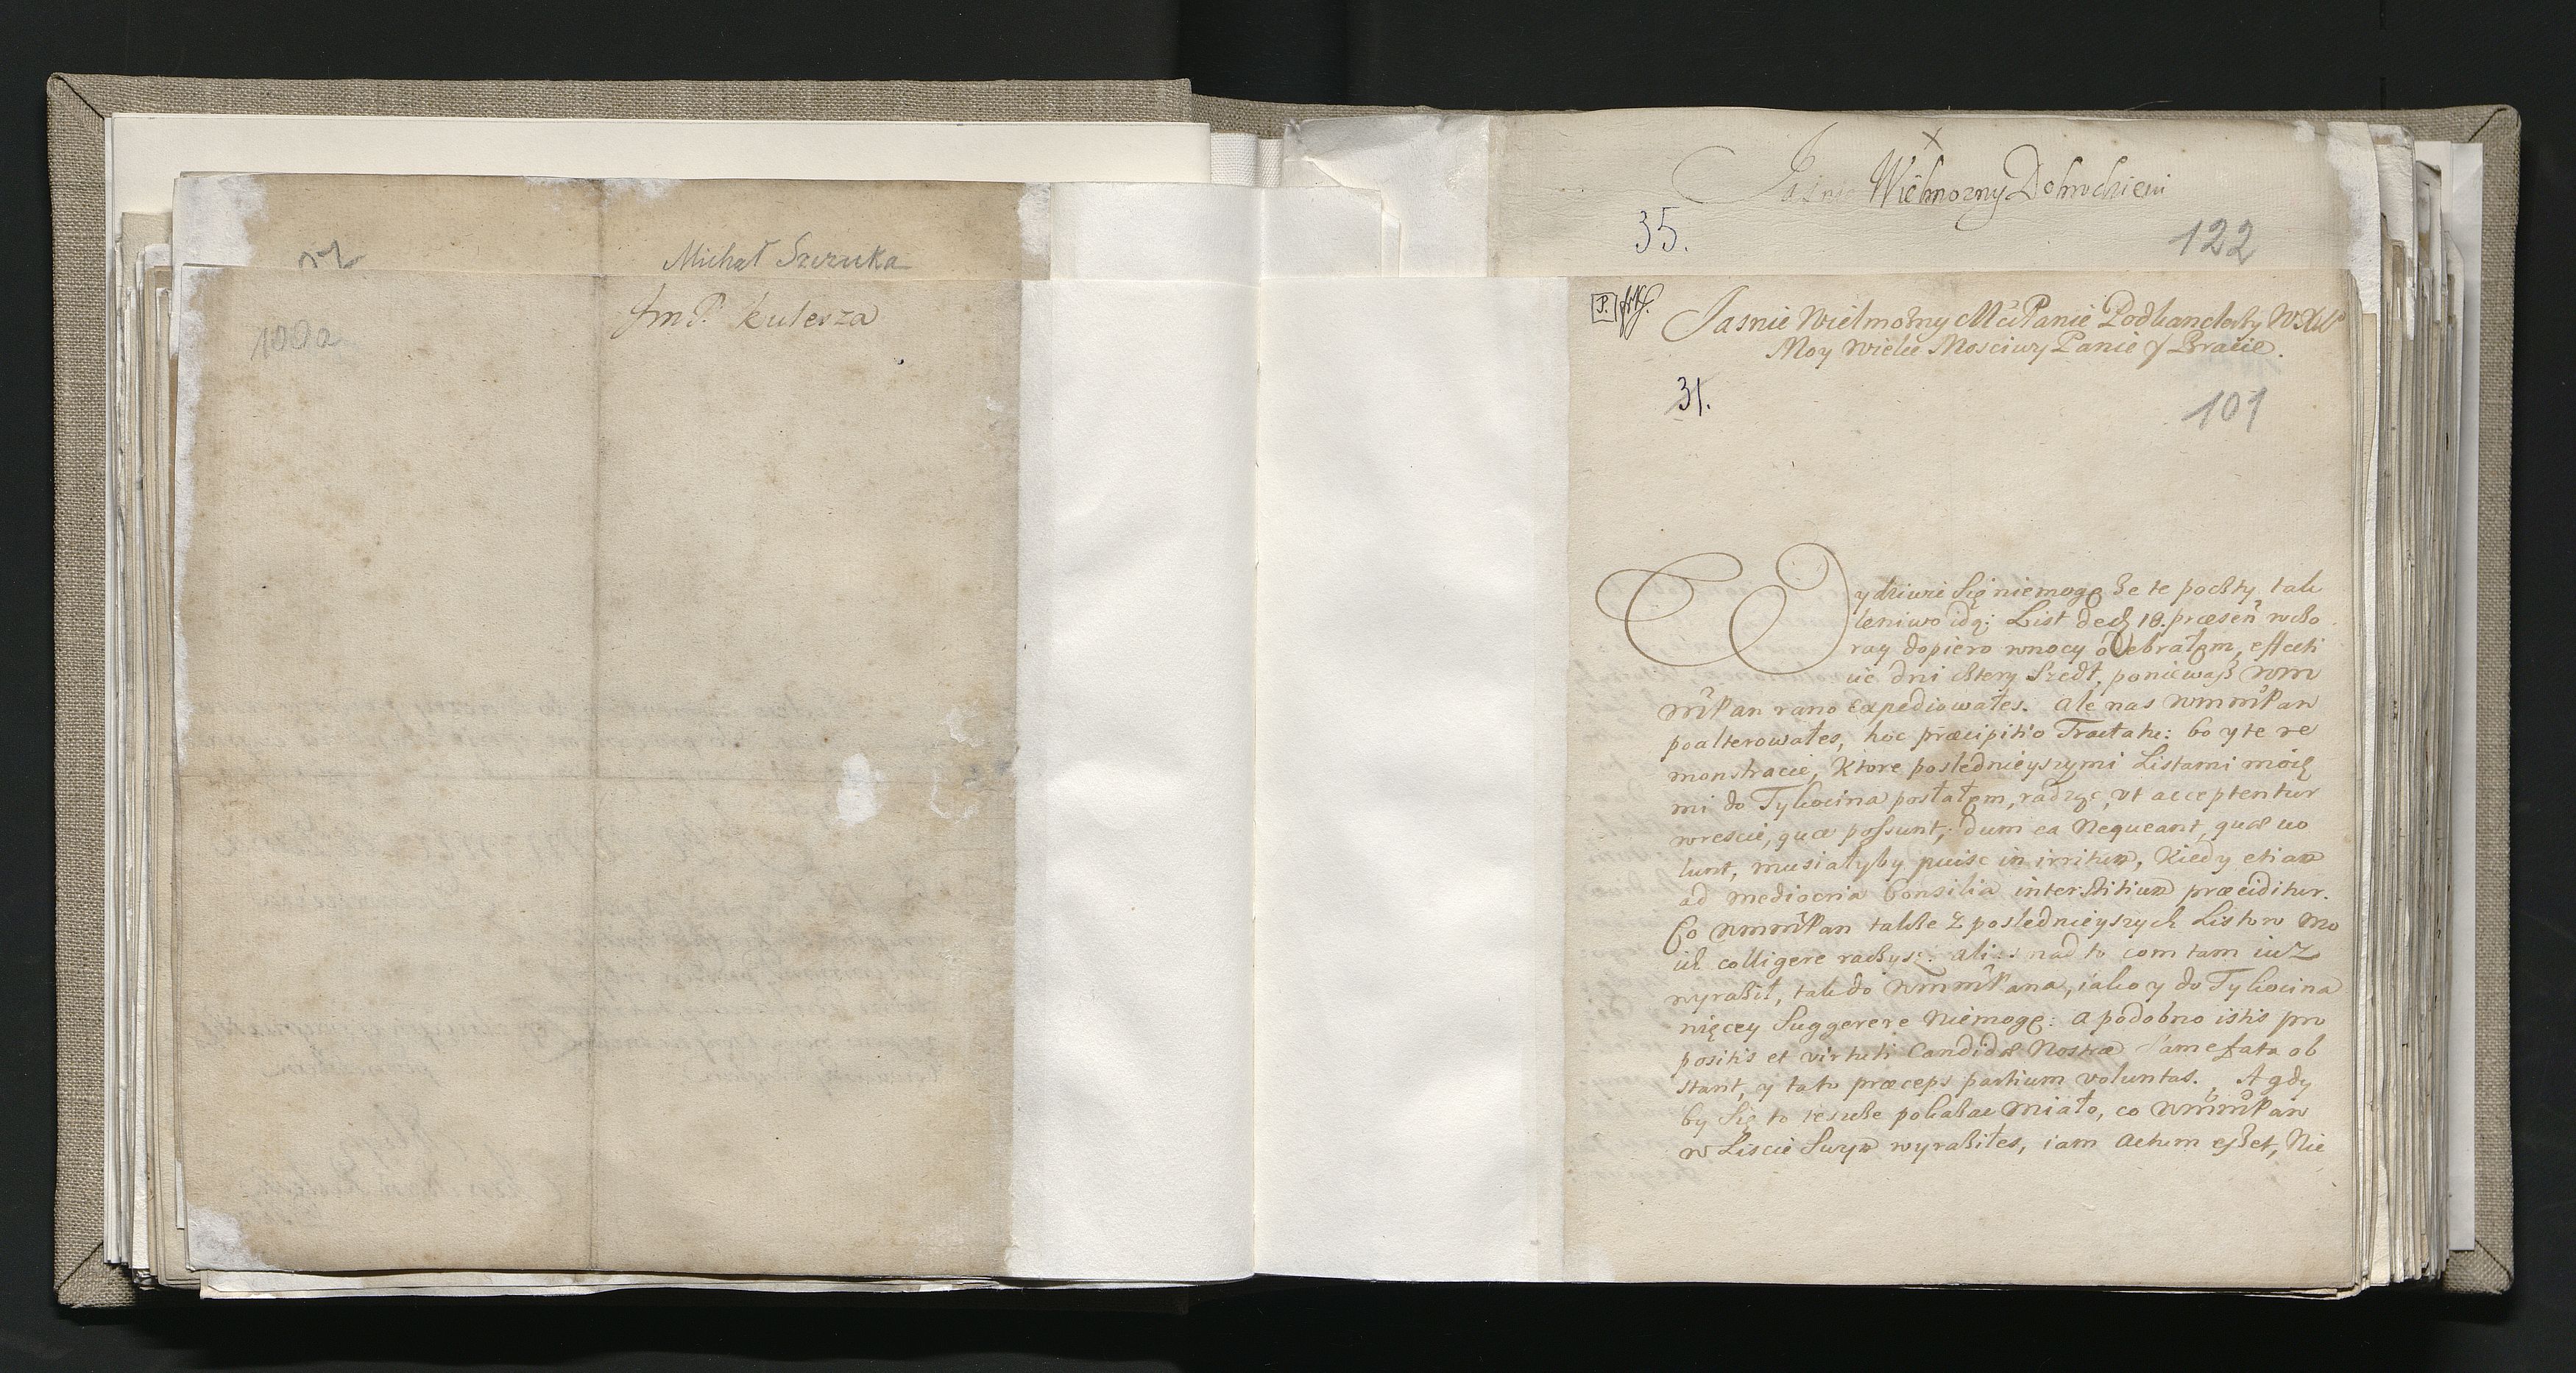 Michał Szczuka
Im P. Kulesza
100a
Jasnie Wielmozny Dobrodzieiu
35.
122
P.
Jasnie Wielmożny Mći Panie Podkanclerzy WXLo
Moy Wielce Mosciwy Panie y Bracie.
31.
101
ydziwic się niemogę że te poczty tak
leniwo idą; List de 18. præsen wczo
ray dopiero wnocy odebrałem, effecti
ue dni cztery szedł, poniewasz WM
MPan rano expediowałes. Ale nas WMMPan
poalterowałes, hoc præcipitio Tractatu: bo y te re
monstracie, ktore poslednieyszymi Listami moie
mi do Tykocina posłałem, radząc, vt acceptentur
wrescie, quæ possunt, dum ea nequeant, quæ uo
lunt, musiałyby puisc in irritum, kiedy etiam
ad mediocria Consilia interstitium præciditur.
Co WMMPan takze z poslednieyszych Listow mo
ich colligere raczysz: nad to com tam iuz
wyraził, tak do WMMPana, iako y do Tykocina
nięcey suggerere niemogę: a podobno istis pro
positis et virtuti Candidæ Nostræ fata ob
stant, y tato præceps partium voluntas. A gdy
by się to ieszcze pokazac miało, co WMMPan
w Liscie swym wyraziłes, iam actum esset, Nie